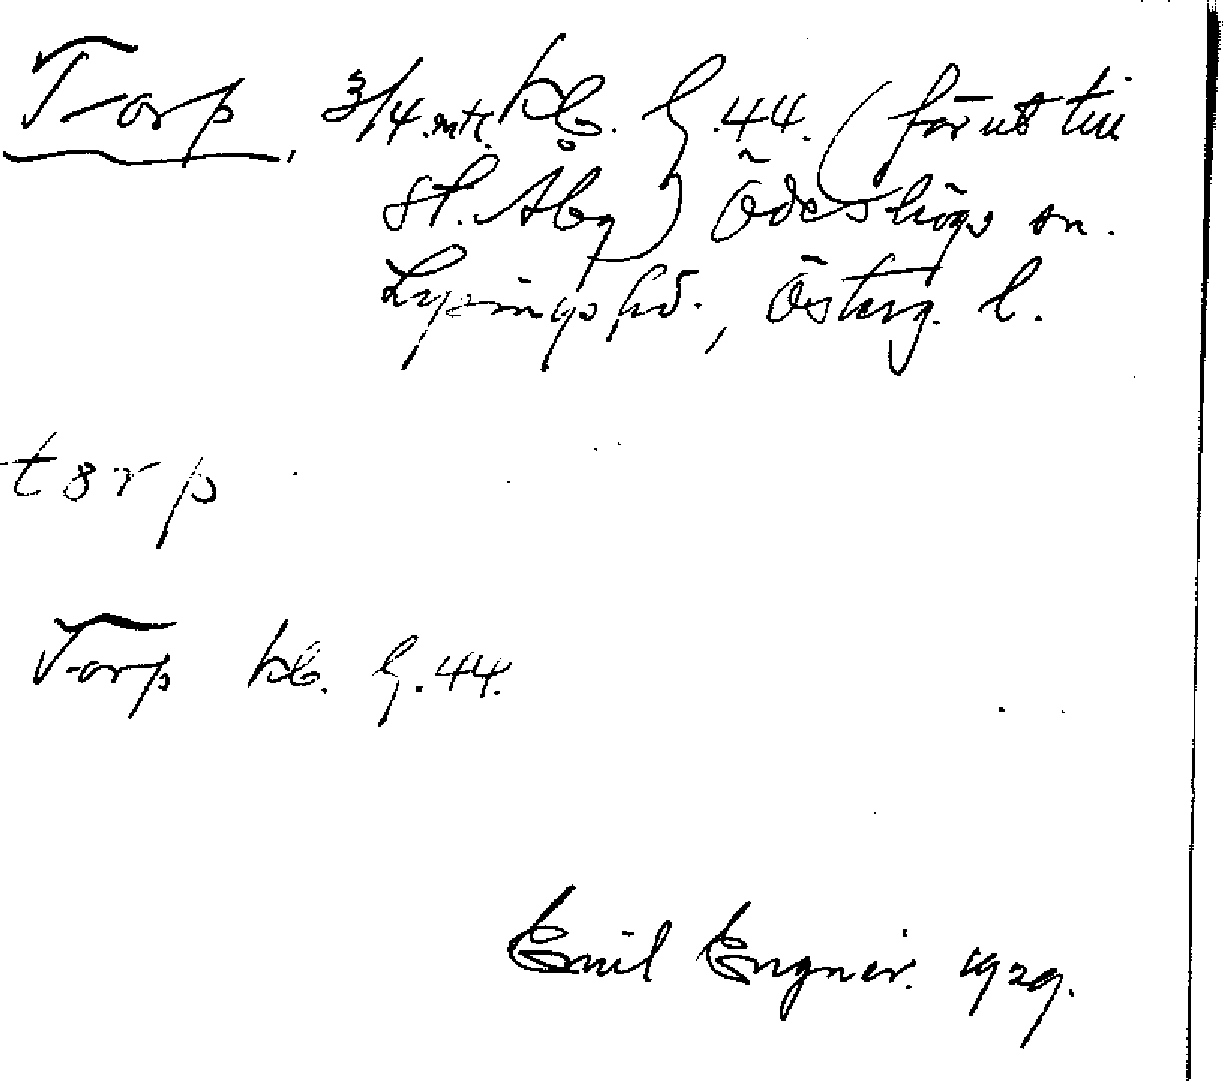 Torp, 3/4 mtl. kb. G. 44. (förut till
St. Åby) Ödeshögs sn.
Lysings hd., Österg. l.
tɔrp
Torp kb. G. 44.
Emil Engner. 1929.